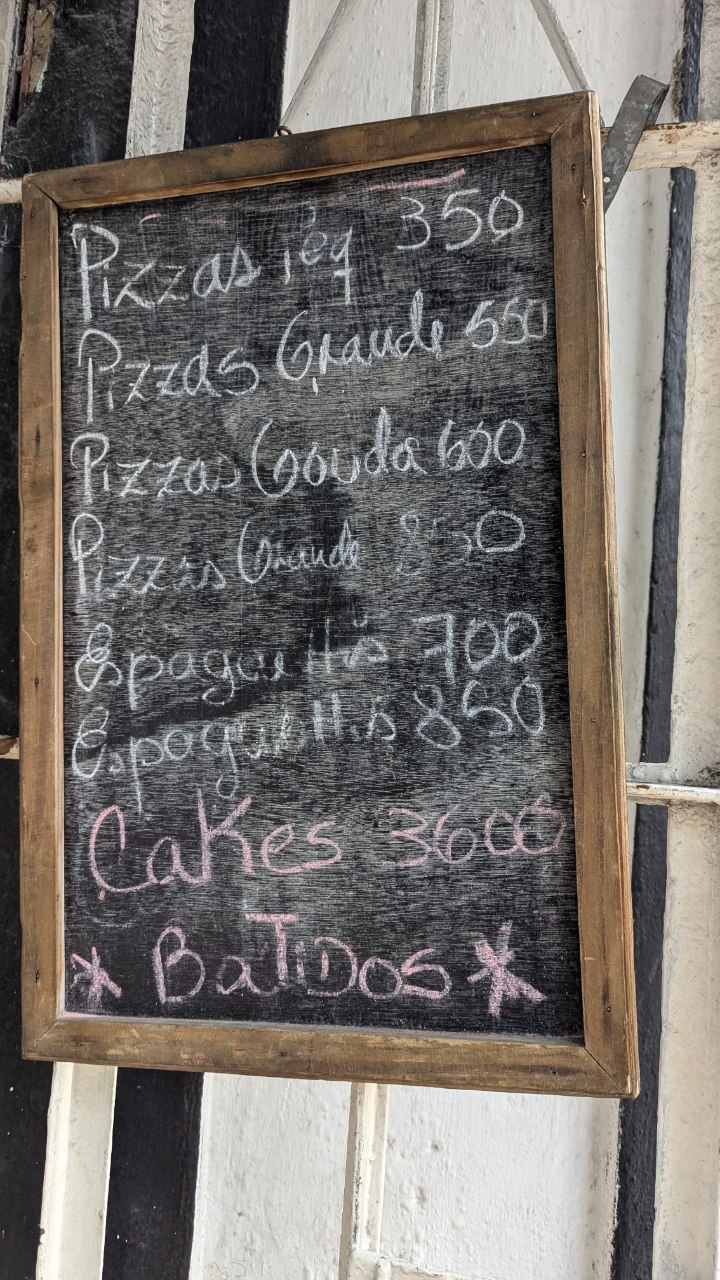 Pizzas Peq 350
Pizzas Grande 550
Pizzas Gouda 600
Pizzas Grande 850
Espaguettis 700
Espaguettis 850
Cakes 3600
* BaTiDos *